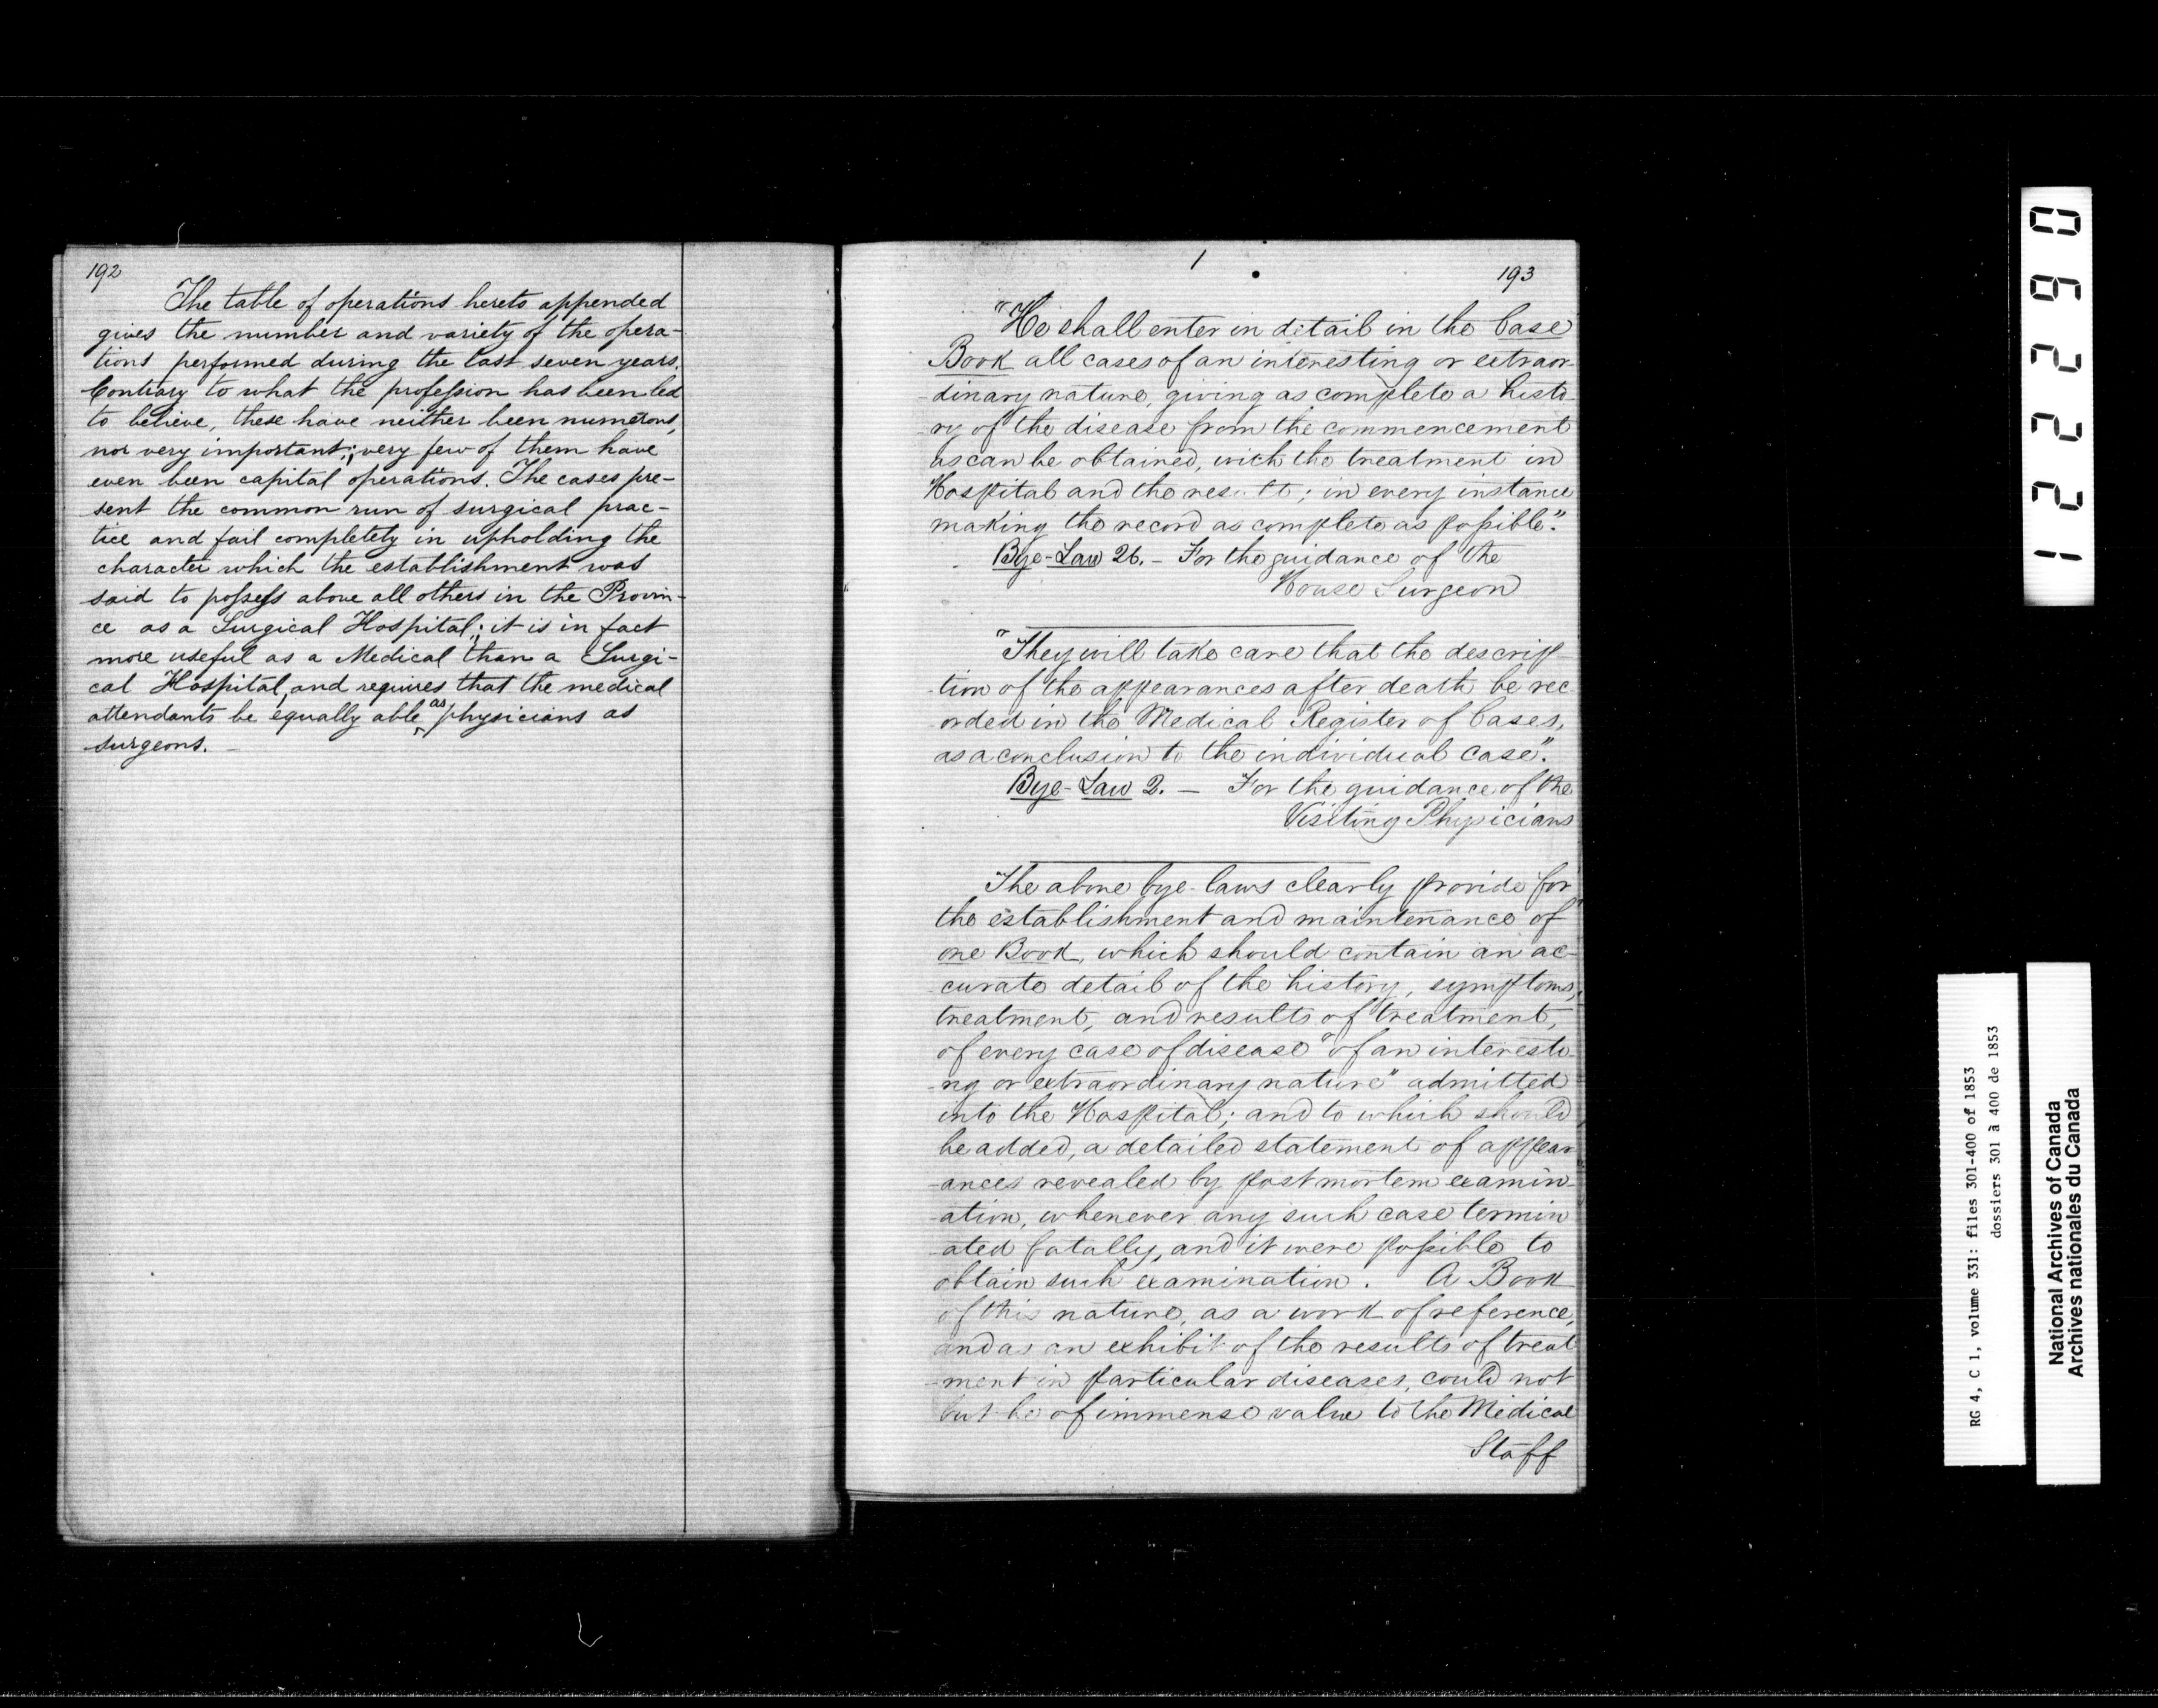 192
The table of operations hereto appended
gives the number and variety of the opera-
tions performed during the last seven years.
Contrary to what the profession has been led
to believe, these have neither been numerous,
nor very important; very few of them have
even been capital operations. The cases pre-
sent the common run of surgical prac-
tice and fail completely in upholding the
character which the establishment was
said to possess above all others in the Provin-
ce as a Surgical Hospital; it is in fact
more useful as a Medical than a Surgi-
cal Hospital, and requires that the medical
attendants be equally able as physicians as
surgeons. –
1
193
"He shall enter in detail in the Case
Book all cases of an interesting or extraor-
-dinary nature, giving as complete a histo-
-ry of the disease from the commencement
as can be obtained, with the treatment in
Hospital and the result; in every instance
making the record as complete as possible".
Bye-Law 26. – For the guidance of the
House Surgeon
"They will take care that the descrip-
-tion of the appearances after death be rec-
-orded in the Medical Register of Cases,
as a conclusion to the individual case".
Bye-Law 2. – For the guidance of the
Visiting Physicians
The above bye-laws clearly provide for
the establishment and maintenance of
one Book, which should contain an ac-
-curate detail of the history, symptoms,
treatment, and results of treatment,
of every case of disease "of an interesti-
-ng or extraordinary nature" admitted
into the Hospital; and to which should
be added, a detailed statement of appear-
-ances revealed by post mortem examin-
-ation, whenever any such case termin-
-ated fatally, and it were possible to
obtain such examination. A Book
of this nature, as a work of reference,
and as an exhibit of the results of treat-
-ment in particular diseases, could not
but be of immense value to the Medical
Staff
122290
RG 4, C 1, volume 331: files 301-400 of 1853
dossiers 301 à 400 de 1853
National Archives of Canada
Archives nationales du Canada